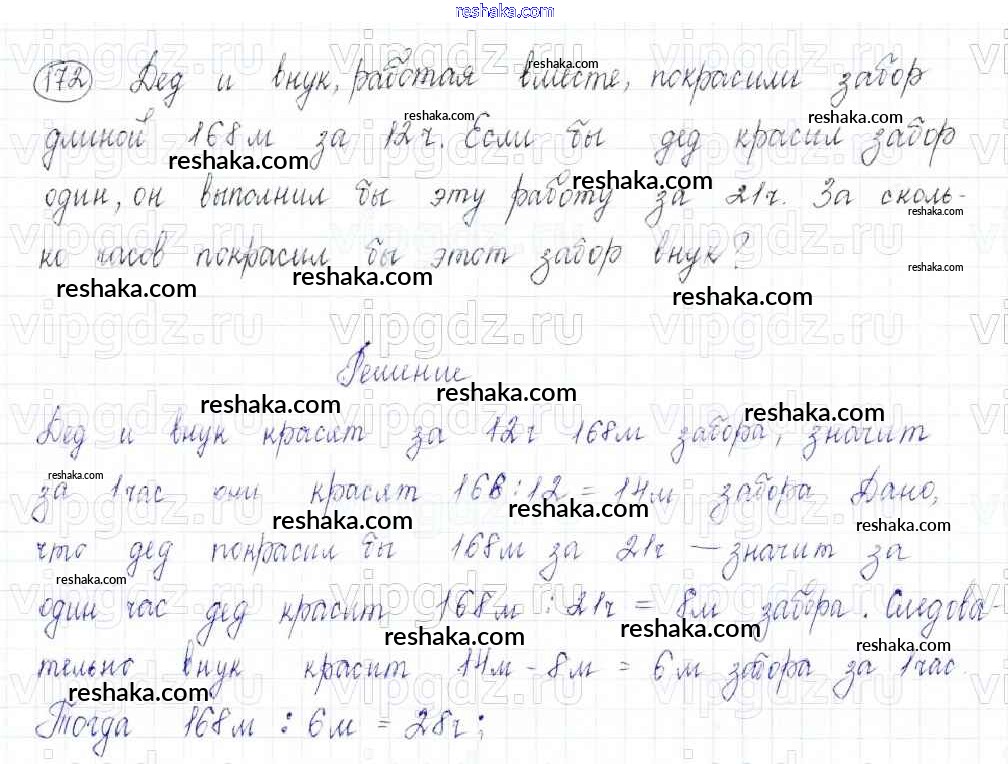 reshaka.com
172 Дед и внук, работая вместе, покрасили забор
длиной 168 м за 12 ч. Если бы дед красил забор
один, он выполнил бы эту работу за 21 ч. За сколь-
ко часов покрасил бы этот забор внук?
Решение
Дед и внук красят за 12 ч 168 м забора, значит
за 1 час они красят 168 : 12 = 14 м забора Дано,
что дед покрасил бы 168 м за 21 ч — значит за
один час дед красит 168 м : 21 ч = 8 м забора. Следова-
тельно внук красит 14 м - 8 м = 6 м забора за 1 час.
Тогда 168 м : 6 м = 28 ч;